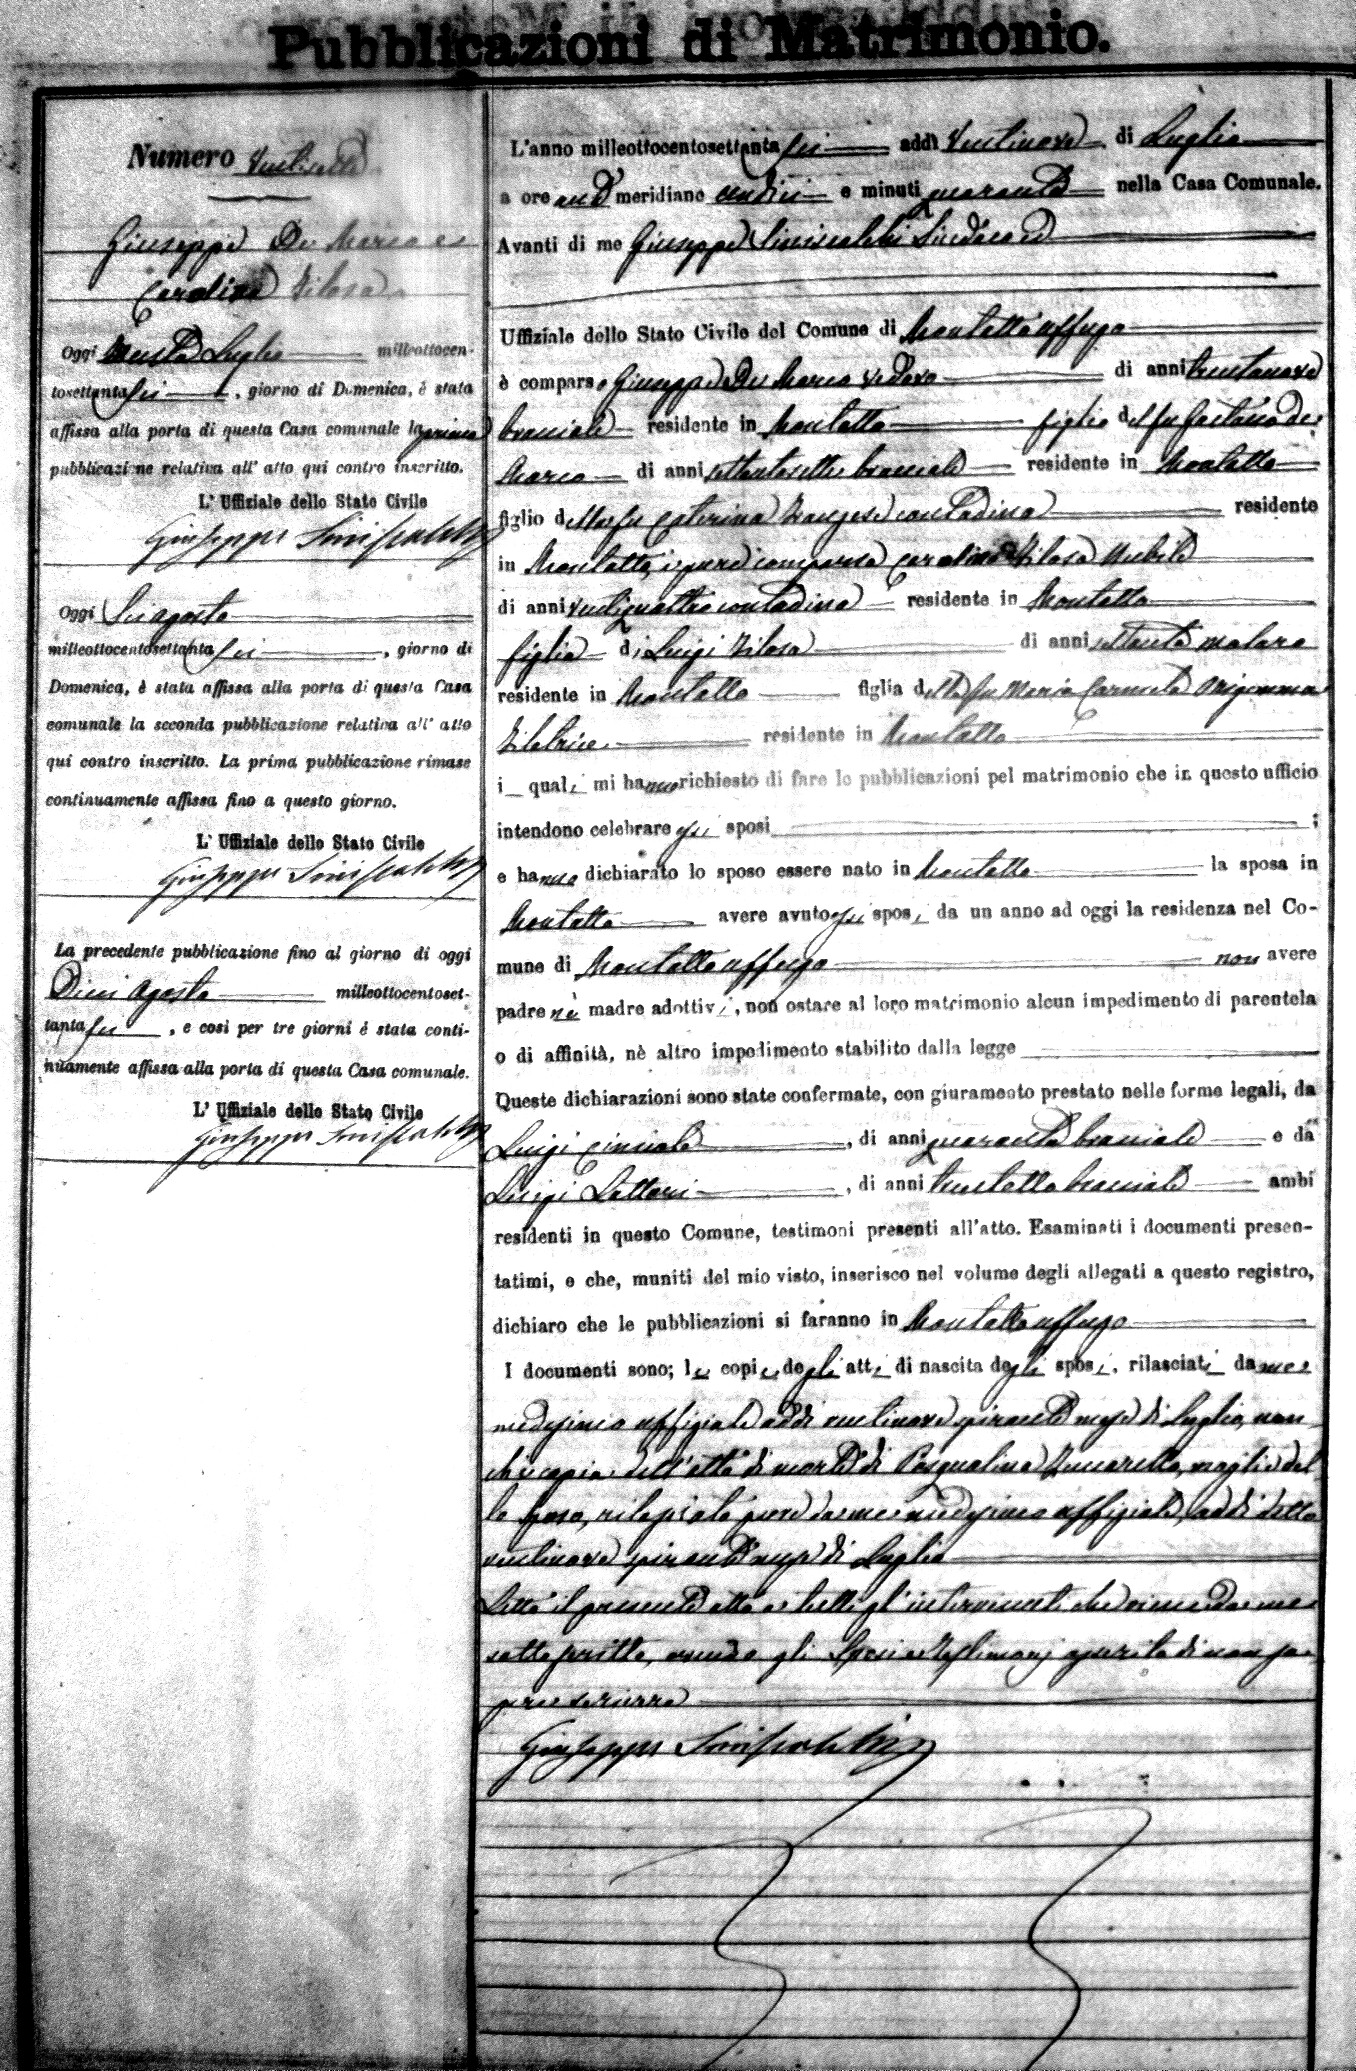 Pubblicazioni di Matrimonio.
Numero Ventisette
Giuseppe De Marco e
Carolina Filosa
Oggi trenta Luglio milleottocen-
tosettantasei, giorno di Domenica, è stata
affissa alla porta di questa Casa comunale la prima
pubblicazione relativa all'atto qui contro inscritto.
L'Uffiziale dello Stato Civile
Giuseppe Siniscalchi
Oggi Sei agosto
milleottocentosettantasei, giorno di
Domenica, è stata affissa alla porta di questa Casa
comunale la seconda pubblicazione relativa all'atto
qui contro inscritto. La prima pubblicazione rimase
continuamente affissa fino a questo giorno.
L'Uffiziale dello Stato Civile
Giuseppe Siniscalchi
La precedente pubblicazione fino al giorno di oggi
Dieci Agosto milleottocentoset-
tantasei, e così per tre giorni é stata conti-
nuamente affissa alla porta di questa Casa comunale.
L'Uffiziale dello Stato Civile
Giuseppe Siniscalchi
L'anno milleottocentosettantasei addì Ventinove di Luglio
a ore anti meridiane undici e minuti quaranta nella Casa Comunale.
Avanti di me Giuseppe Siniscalchi Sindaco
Uffiziale dello Stato Civile del Comune di Montalto uffugo
è comparso Giuseppe De Marco vedovo di anni trentanove
bracciale residente in Montalto figlio del fu Gaetano De
Marco di anni settantasette bracciale residente in Montalto
figlio della fu Caterina contadina residente
in Montalto, è pure comparsa Carolina Filosa Nubile
di anni ventiquattro contadina residente in Montalto
figlia di Luigi Filosa di anni settanta
residente in Montalto figlia della fu Maria Carmela
filatrice residente in Montalto
i quali mi hanno richiesto di fare le pubblicazioni pel matrimonio che in questo ufficio
intendono celebrare essi sposi ;
e hanno dichiarato lo sposo essere nato in Montalto la sposa in
Montalto avere avuto essi sposi da un anno ad oggi la residenza nel Co-
mune di Montalto uffugo non avere
padre nè madre adottivi, non ostare al loro matrimonio alcun impedimento di parentela
o di affinità, nè altro impedimento stabilito dalla legge
Queste dichiarazioni sono state confermate, con giuramento prestato nelle forme legali, da
Luigi , di anni quaranta bracciale e da
Luigi Lattari, di anni trentotto bracciale ambi
residenti in questo Comune, testimoni presenti all'atto. Esaminati i documenti presen-
tatimi, e che, muniti del mio visto, inserisco nel volume degli allegati a questo registro,
dichiaro che le pubblicazioni si faranno in Montalto uffugo
I documenti sono; le copie degli atti di nascita degli sposi, rilasciati da me
medesimo uffiziale addi ventinove spirante mese di Luglio, non
chè copia dell'atto di morte di Pasqualina, moglie del
lo sposo, rilasciata pure da me medesimo uffiziale, addi detto
ventinove spirante mese di Luglio
Letto il presente atto a tutti gl'intervenuti, che viene da me
sottoscritto, avendo gli Sposi e Testimonj asserito di non sa
pere scrivere
Giuseppe Siniscalchi